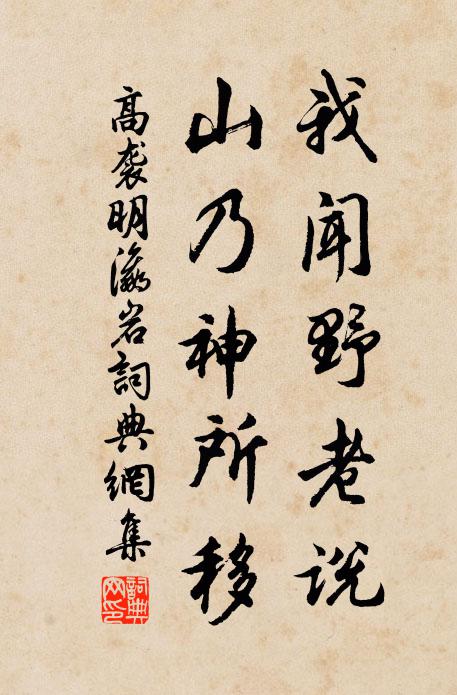 我闻野老说
山乃神所移
高袭明瀛岩詞典網集
詞典
网印